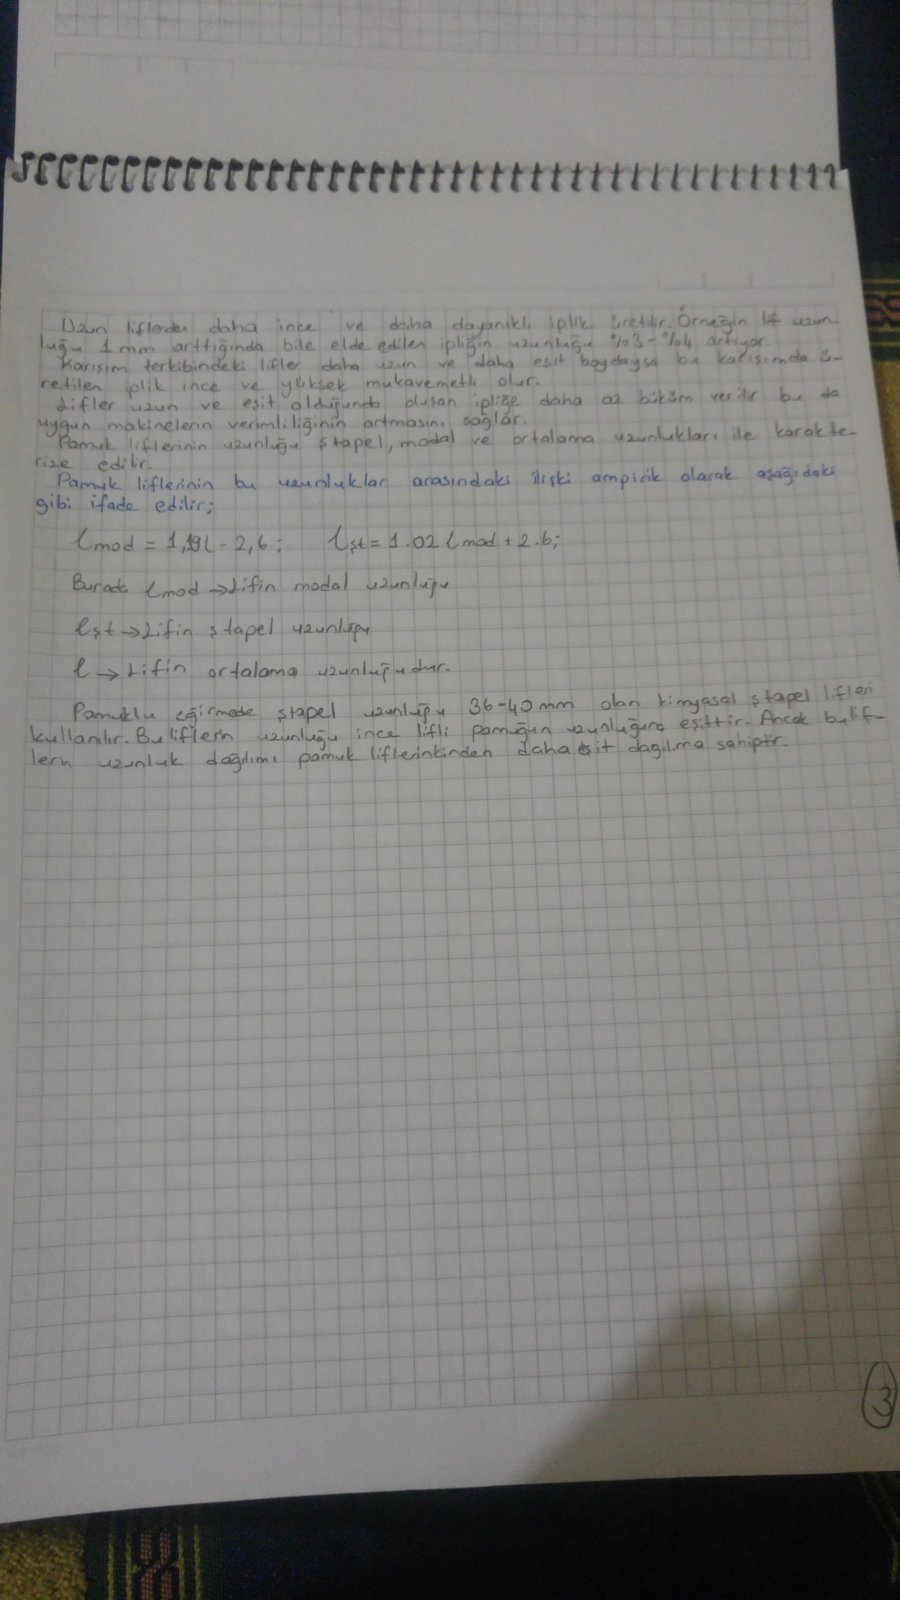 Uzun liflerden daha ince ve daha dayanıklı iplik üretilir. Örneğin lif uzun-
luğu 1 mm arttığında bile elde edilen ipliğin uzunluğu %3-%4 artıyor.
Karışım terkibindeki lifler daha uzun ve daha eşit boydaysa bu karışımda ü-
retilen iplik ince ve yüksek mukavemetli olur.
Lifler uzun ve eşit olduğunda oluşan ipliğe daha az büküm verilir bu da
uygun makinelerin verimliliğinin artmasını sağlar.
Pamuk liflerinin uzunluğu ştapel, modal ve ortalama uzunlukları ile karakte-
rize edilir.
Pamuk liflerinin bu uzunluklar arasındaki ilişki ampirik olarak aşağıdaki
gibi ifade edilir;
lmod = 1,19l - 2,6; lşt = 1.02 lmod + 2.6;
Burada lmod → Lifin modal uzunluğu
lşt → Lifin ştapel uzunluğu
l → Lifin ortalama uzunluğudur.
Pamuklu eğirmede ştapel uzunluğu 36-40 mm olan kimyasal ştapel lifleri
kullanılır. Bu liflerin uzunluğu ince lifli pamuğun uzunluğuna eşittir. Ancak bu lif-
lerin uzunluk dağılımı pamuk liflerinkinden daha eşit dağılıma sahiptir.
3